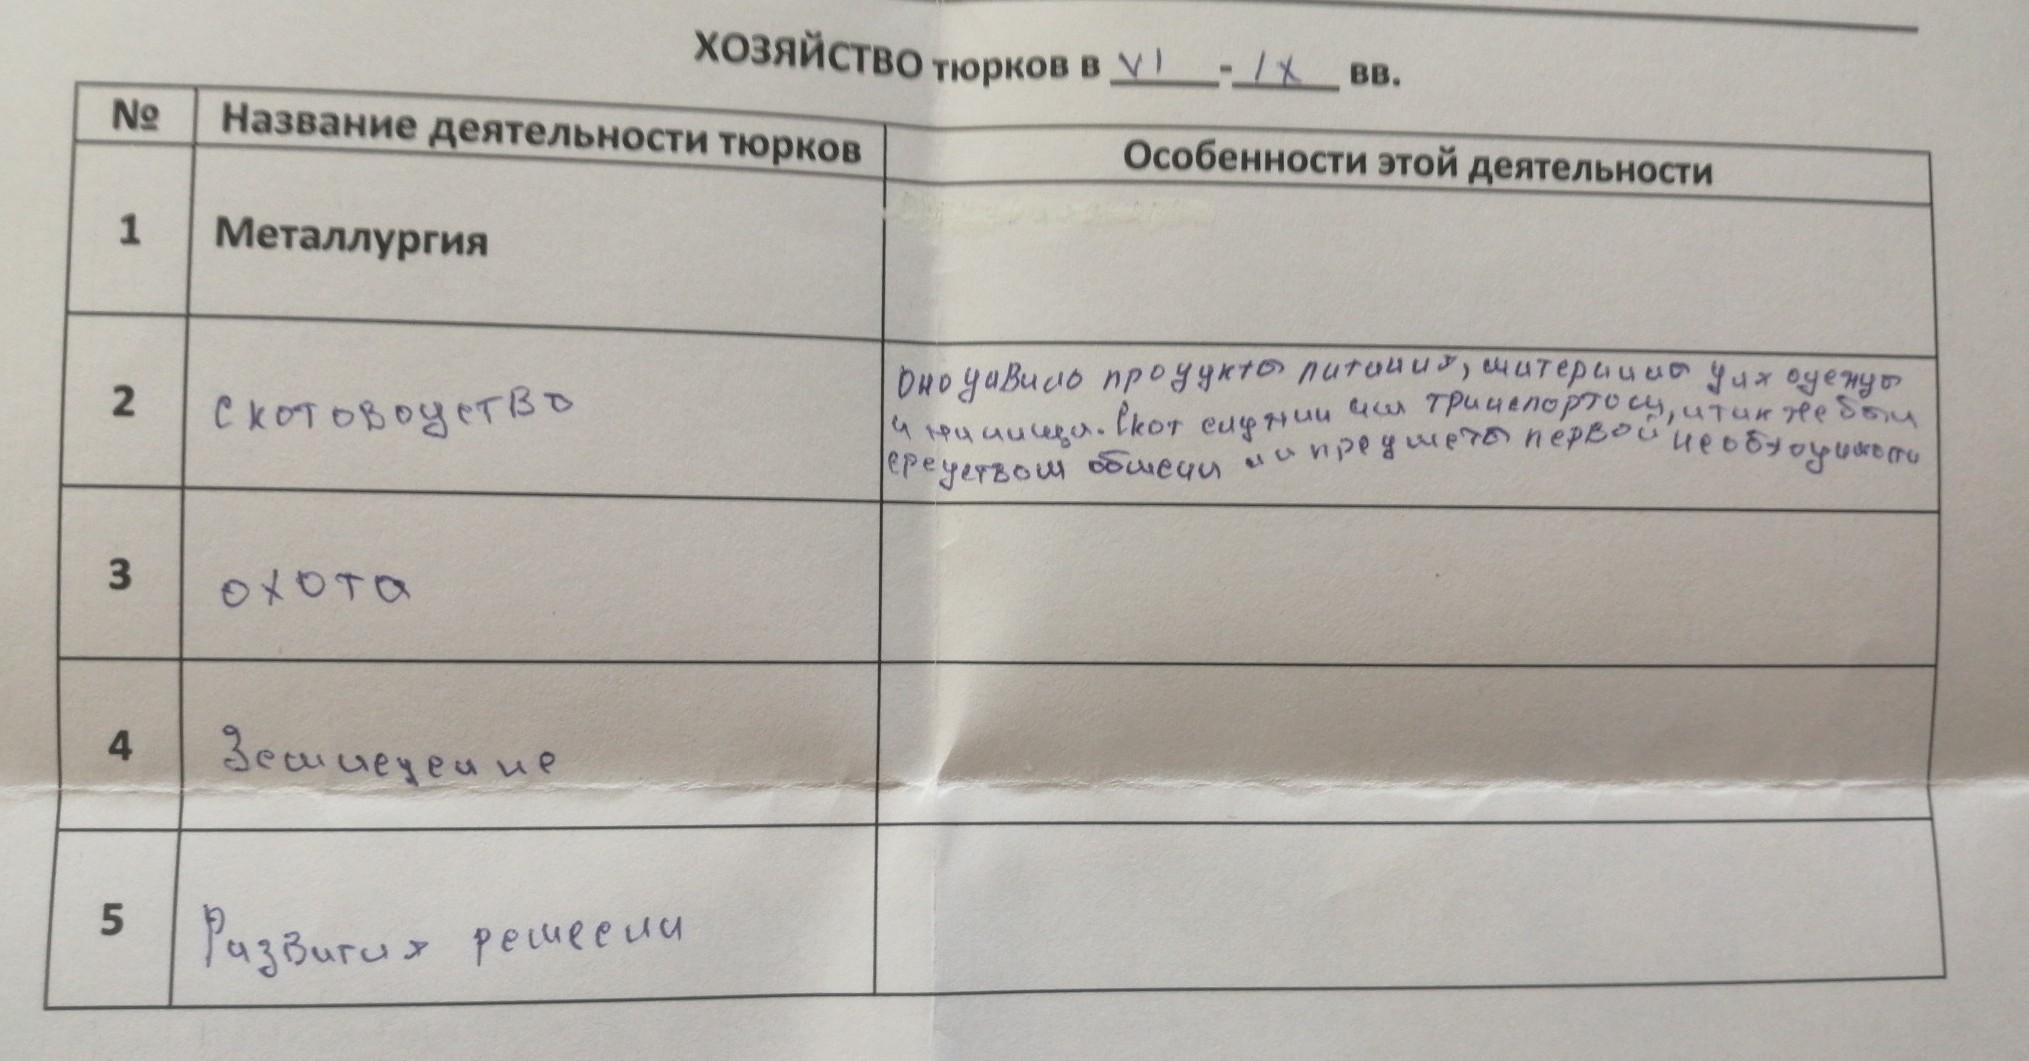 ХОЗЯЙСТВО тюрков в VI - IX вв.
№ Название деятельности тюрков Особенности этой деятельности
1 Металлургия
2 скотоводство
Оно давало продукты питания, материалы для одежды
и жилища. Скот служил им транспортом, и так же был
средством обмена на предметы первой необходимости
3 охота
4 Земледелие
5 Развития ремесла